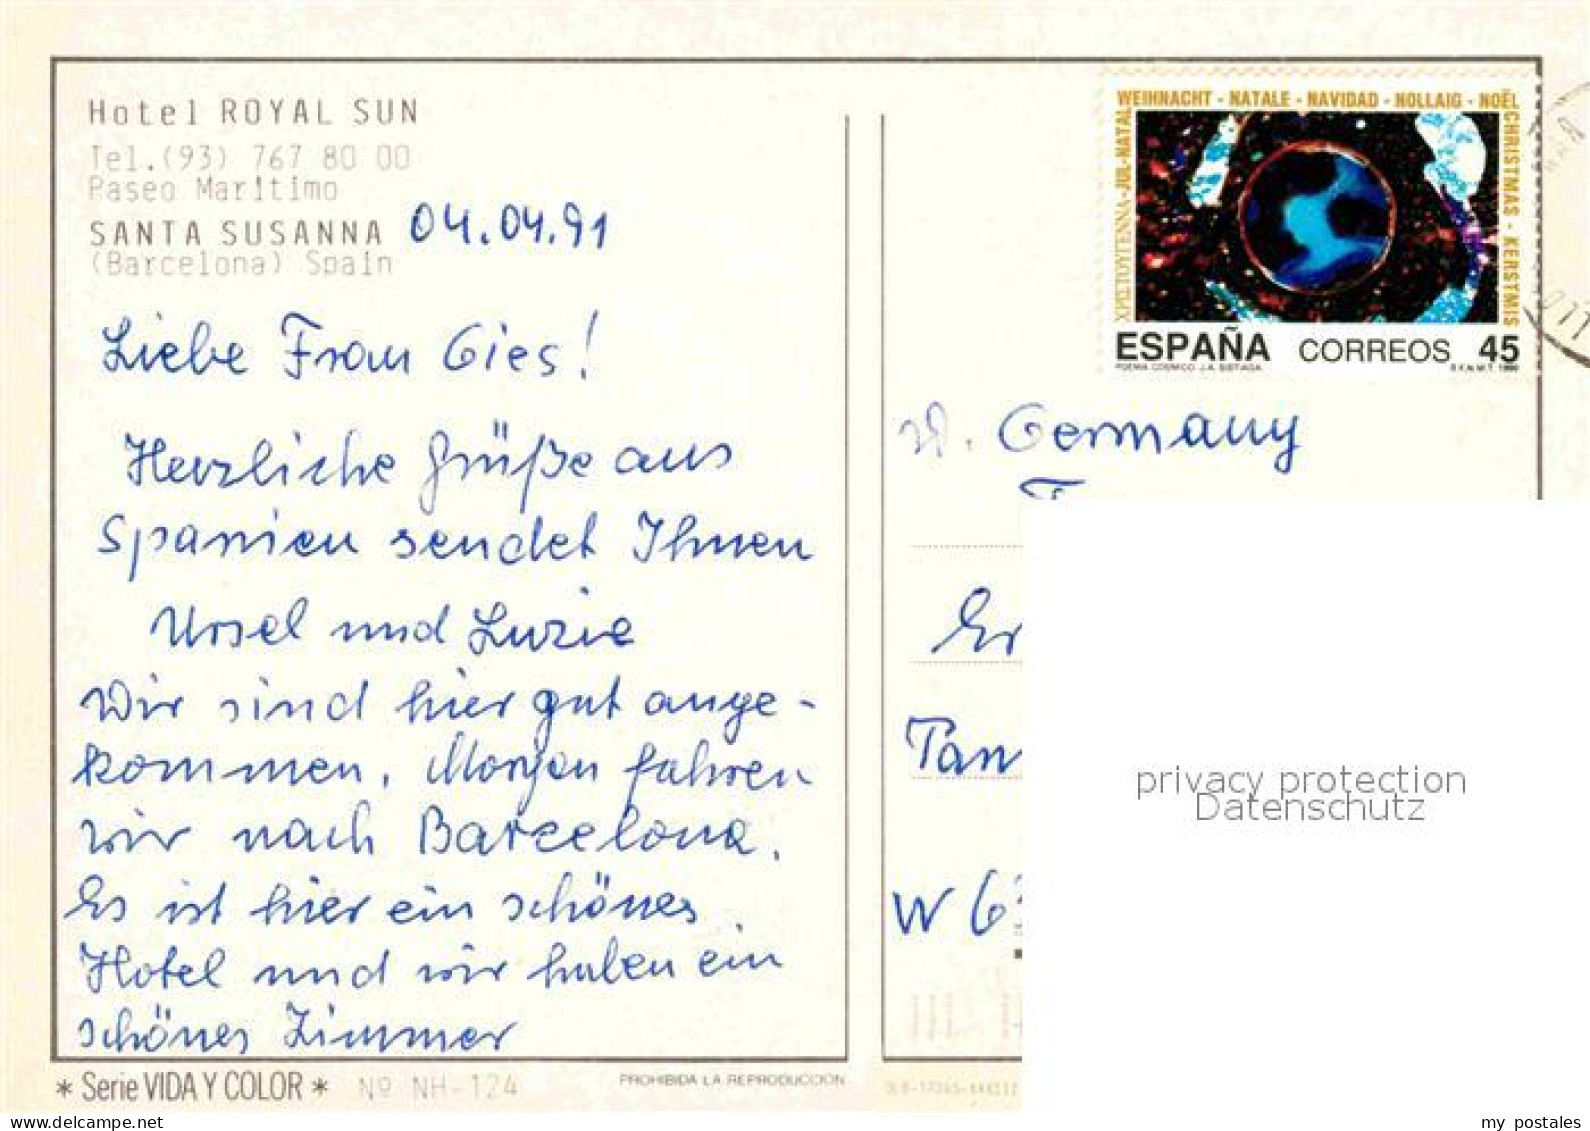 Hotel ROYAL SUN
Tel.(93) 767 80 00
Paseo Maritimo
SANTA SUSANNA 04.04.91
(Barcelona) Spain
Liebe Frau Gies!
Herzliche Grüße aus
Spanien sendet Ihnen
Ursel und Luzie
Wir sind hier gut ange-
kommen. Morgen fahren
wir nach Barcelona.
Es ist hier ein schönes
Hotel und wir haben ein
schönes Zimmer
* Serie VIDA Y COLOR * Nº NH-124
PROHIBIDA LA REPRODUCCION
WEIHNACHT - NATALE - NAVIDAD - NOLLAIG - NOËL
CHRISTMAS - KERSTMIS
ΧΡΙΣΤΟΥΓΕΝΝΑ - JUL - NATAL
ESPAÑA CORREOS 45
POEMA COSMICO J.A. SISTIAGA F.N.M.T. 1990
W. Germany
Er
Tan
W 6
privacy protection
Datenschutz
my postales
delcampe.net